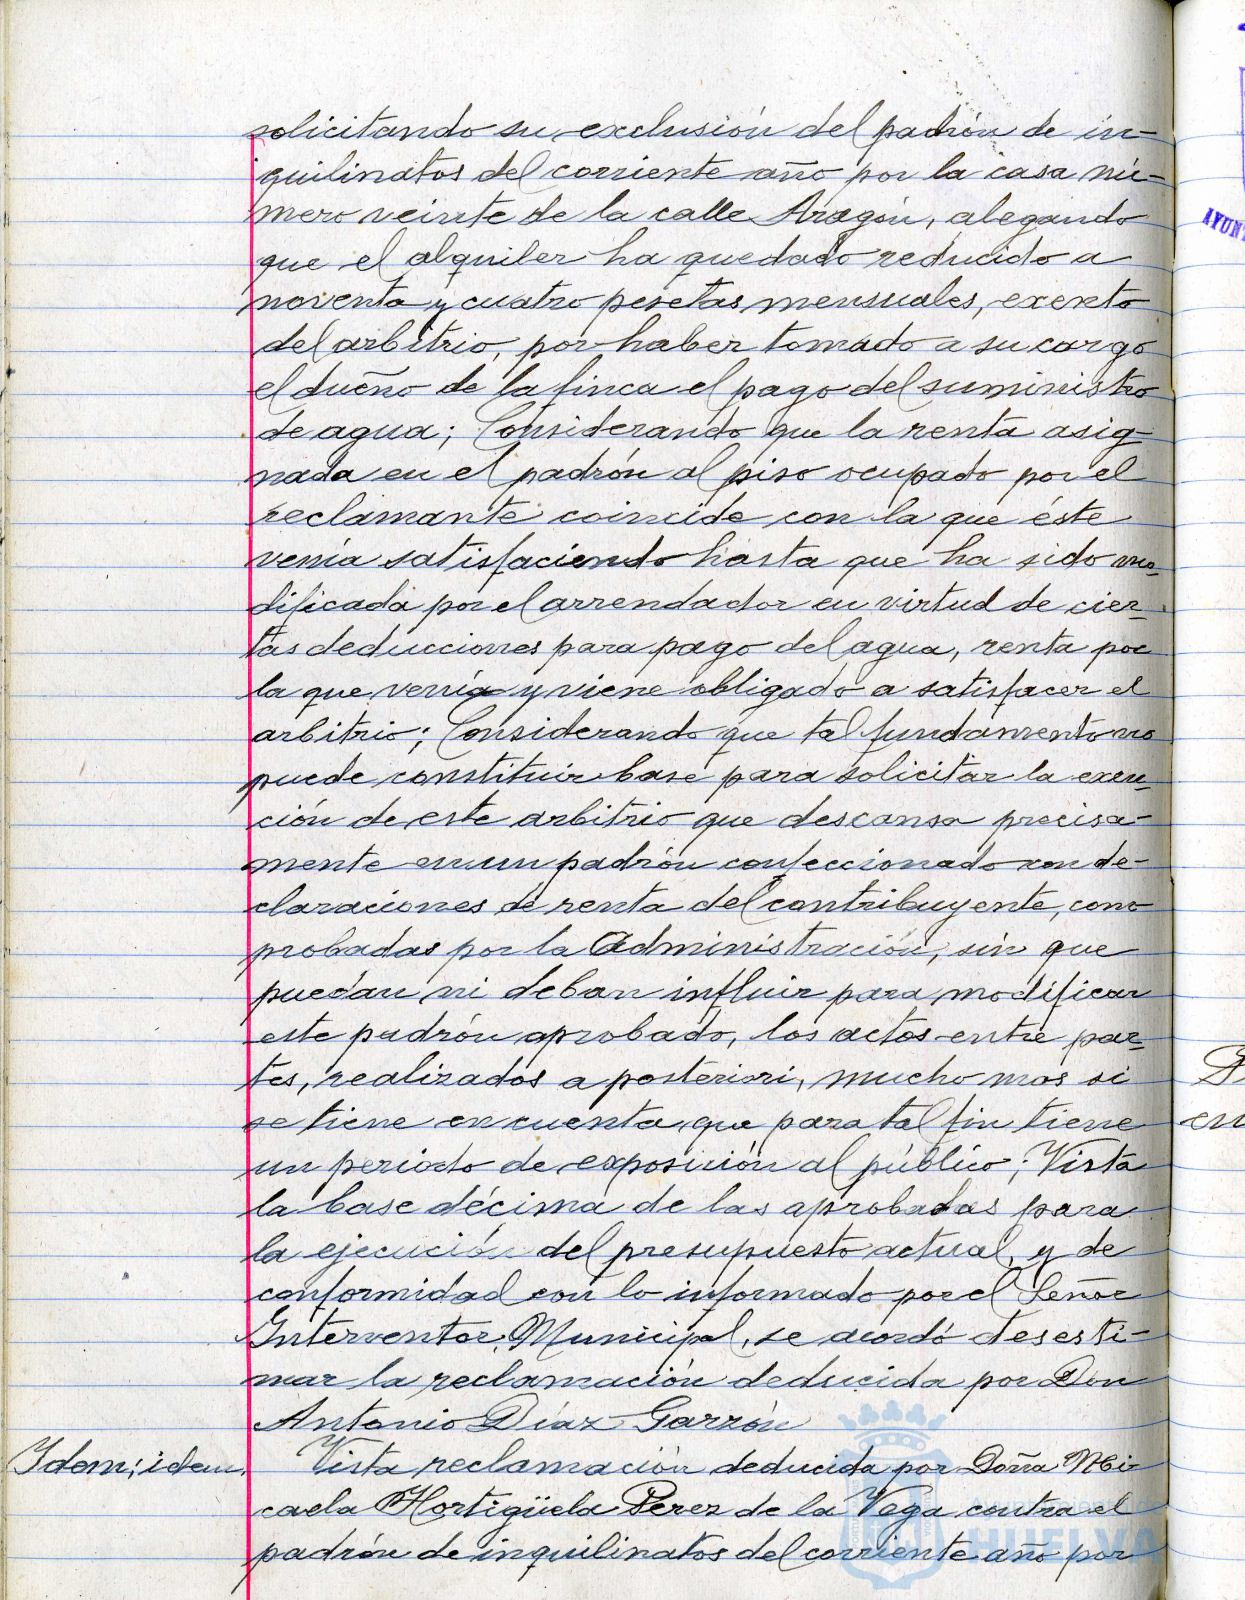 solicitando su exclusión del padrón de in-
quilinatos del corriente año por la casa nú-
mero veinte de la calle Aragón, alegando
que el alquiler ha quedado reducido a
noventa y cuatro pesetas mensuales, exento
del arbitrio, por haber tomado a su cargo
el dueño de la finca el pago del suministro
de agua; Considerando que la renta asig-
nada en el padrón al piso ocupado por el
reclamante coincide con la que éste
venía satisfaciendo hasta que ha sido mo-
dificada por el arrendador en virtud de cier-
tas deducciones para pago del agua, renta por
la que venía y viene obligado a satisfacer el
arbitrio; Considerando que tal fundamento no
puede constituir base para solicitar la exen-
ción de este arbitrio que descansa precisa-
mente en un padrón confeccionado con de-
claraciones de renta del contribuyente, com-
probadas por la Administración, sin que
puedan ni deban influir para modificar
este padrón aprobado, los actos entre par-
tes, realizados a posteriori, mucho mas si
se tiene en cuenta que para tal fin tiene
un periodo de exposición al público; Vista
la base décima de las aprobadas para
la ejecución del presupuesto actual, y de
conformidad con lo informado por el Señor
Interventor Municipal, se acordó desesti-
mar la reclamación deducida por Don
Antonio Díaz Garzón
Idem; idem. Vista reclamación deducida por Doña Mi-
caela Hortigüela Perez de la Vega contra el
padrón de inquilinatos del corriente año por
HUELVA
AYUN
en